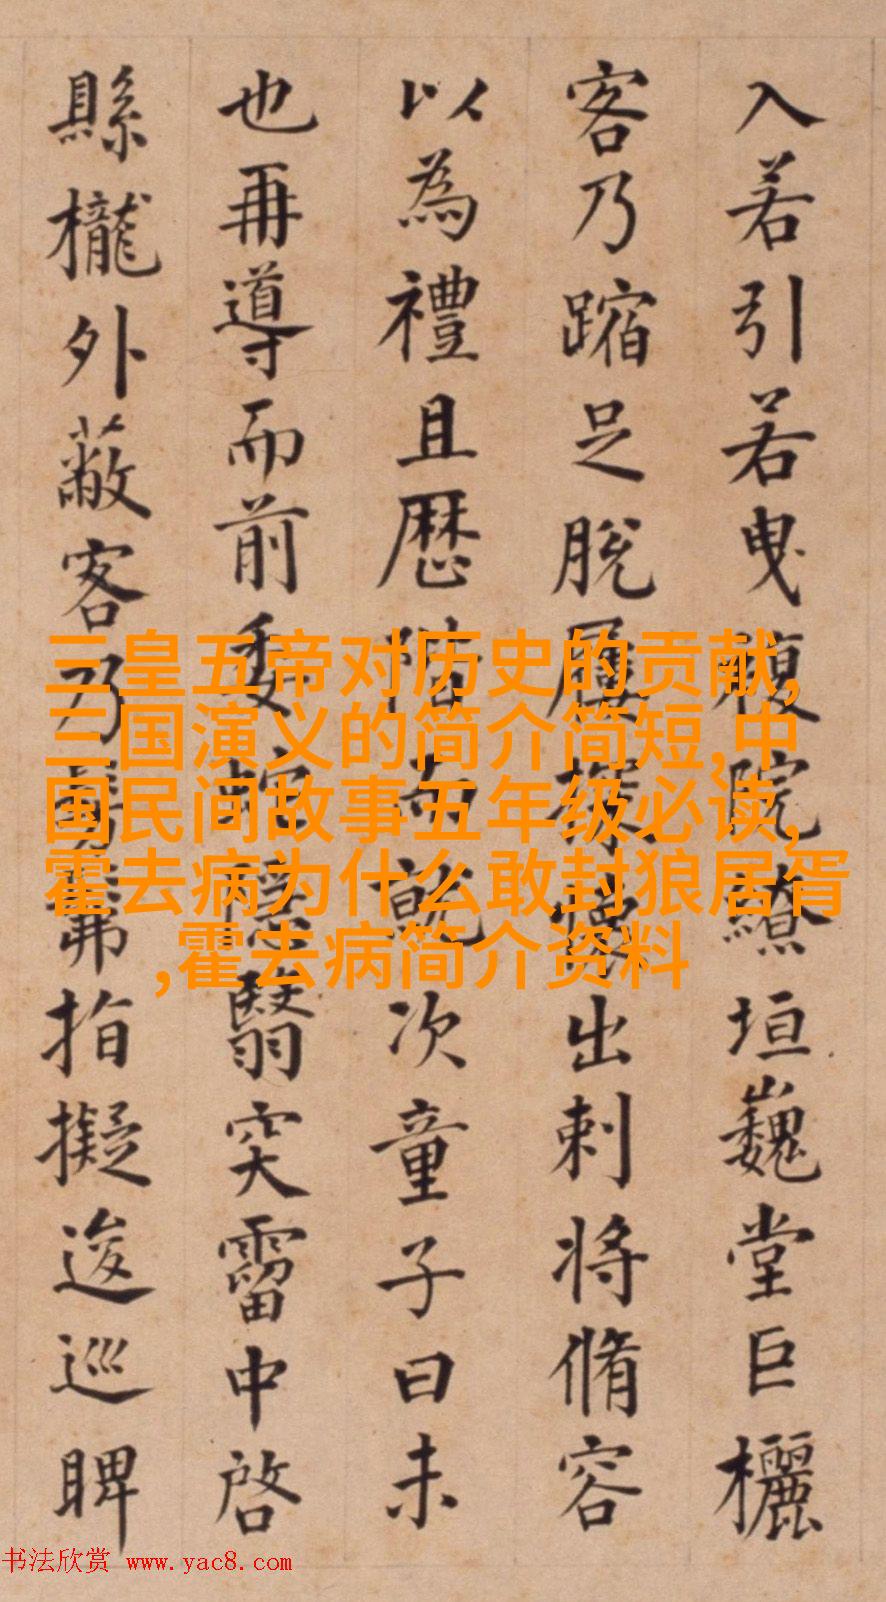 入若引若曳複院繚垣巍堂巨欐
客乃蹜足脫屨探懷出刺將脩容
以為禮且歷階而就次童子曰未
也再導而前委蛇隱翳突霤中啓
縣櫳外蔽客乃
指擬逡巡睥
三皇五帝对历史的贡献,
三国演义的简介简短,中
国民间故事五年级必读,
霍去病为什么敢封狼居胥
,霍去病简介资料
书法欣赏 www.yac8.com